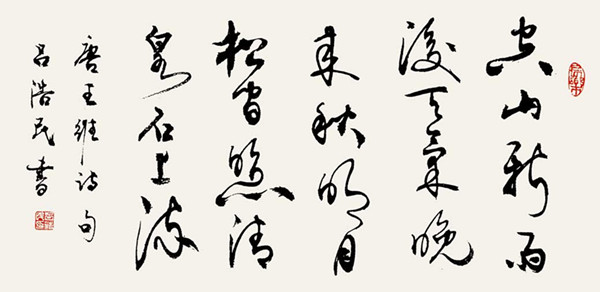 空山新雨
後天氣晚
來秋明月
松間照清
泉石上流
唐王維詩句
吕浩民書